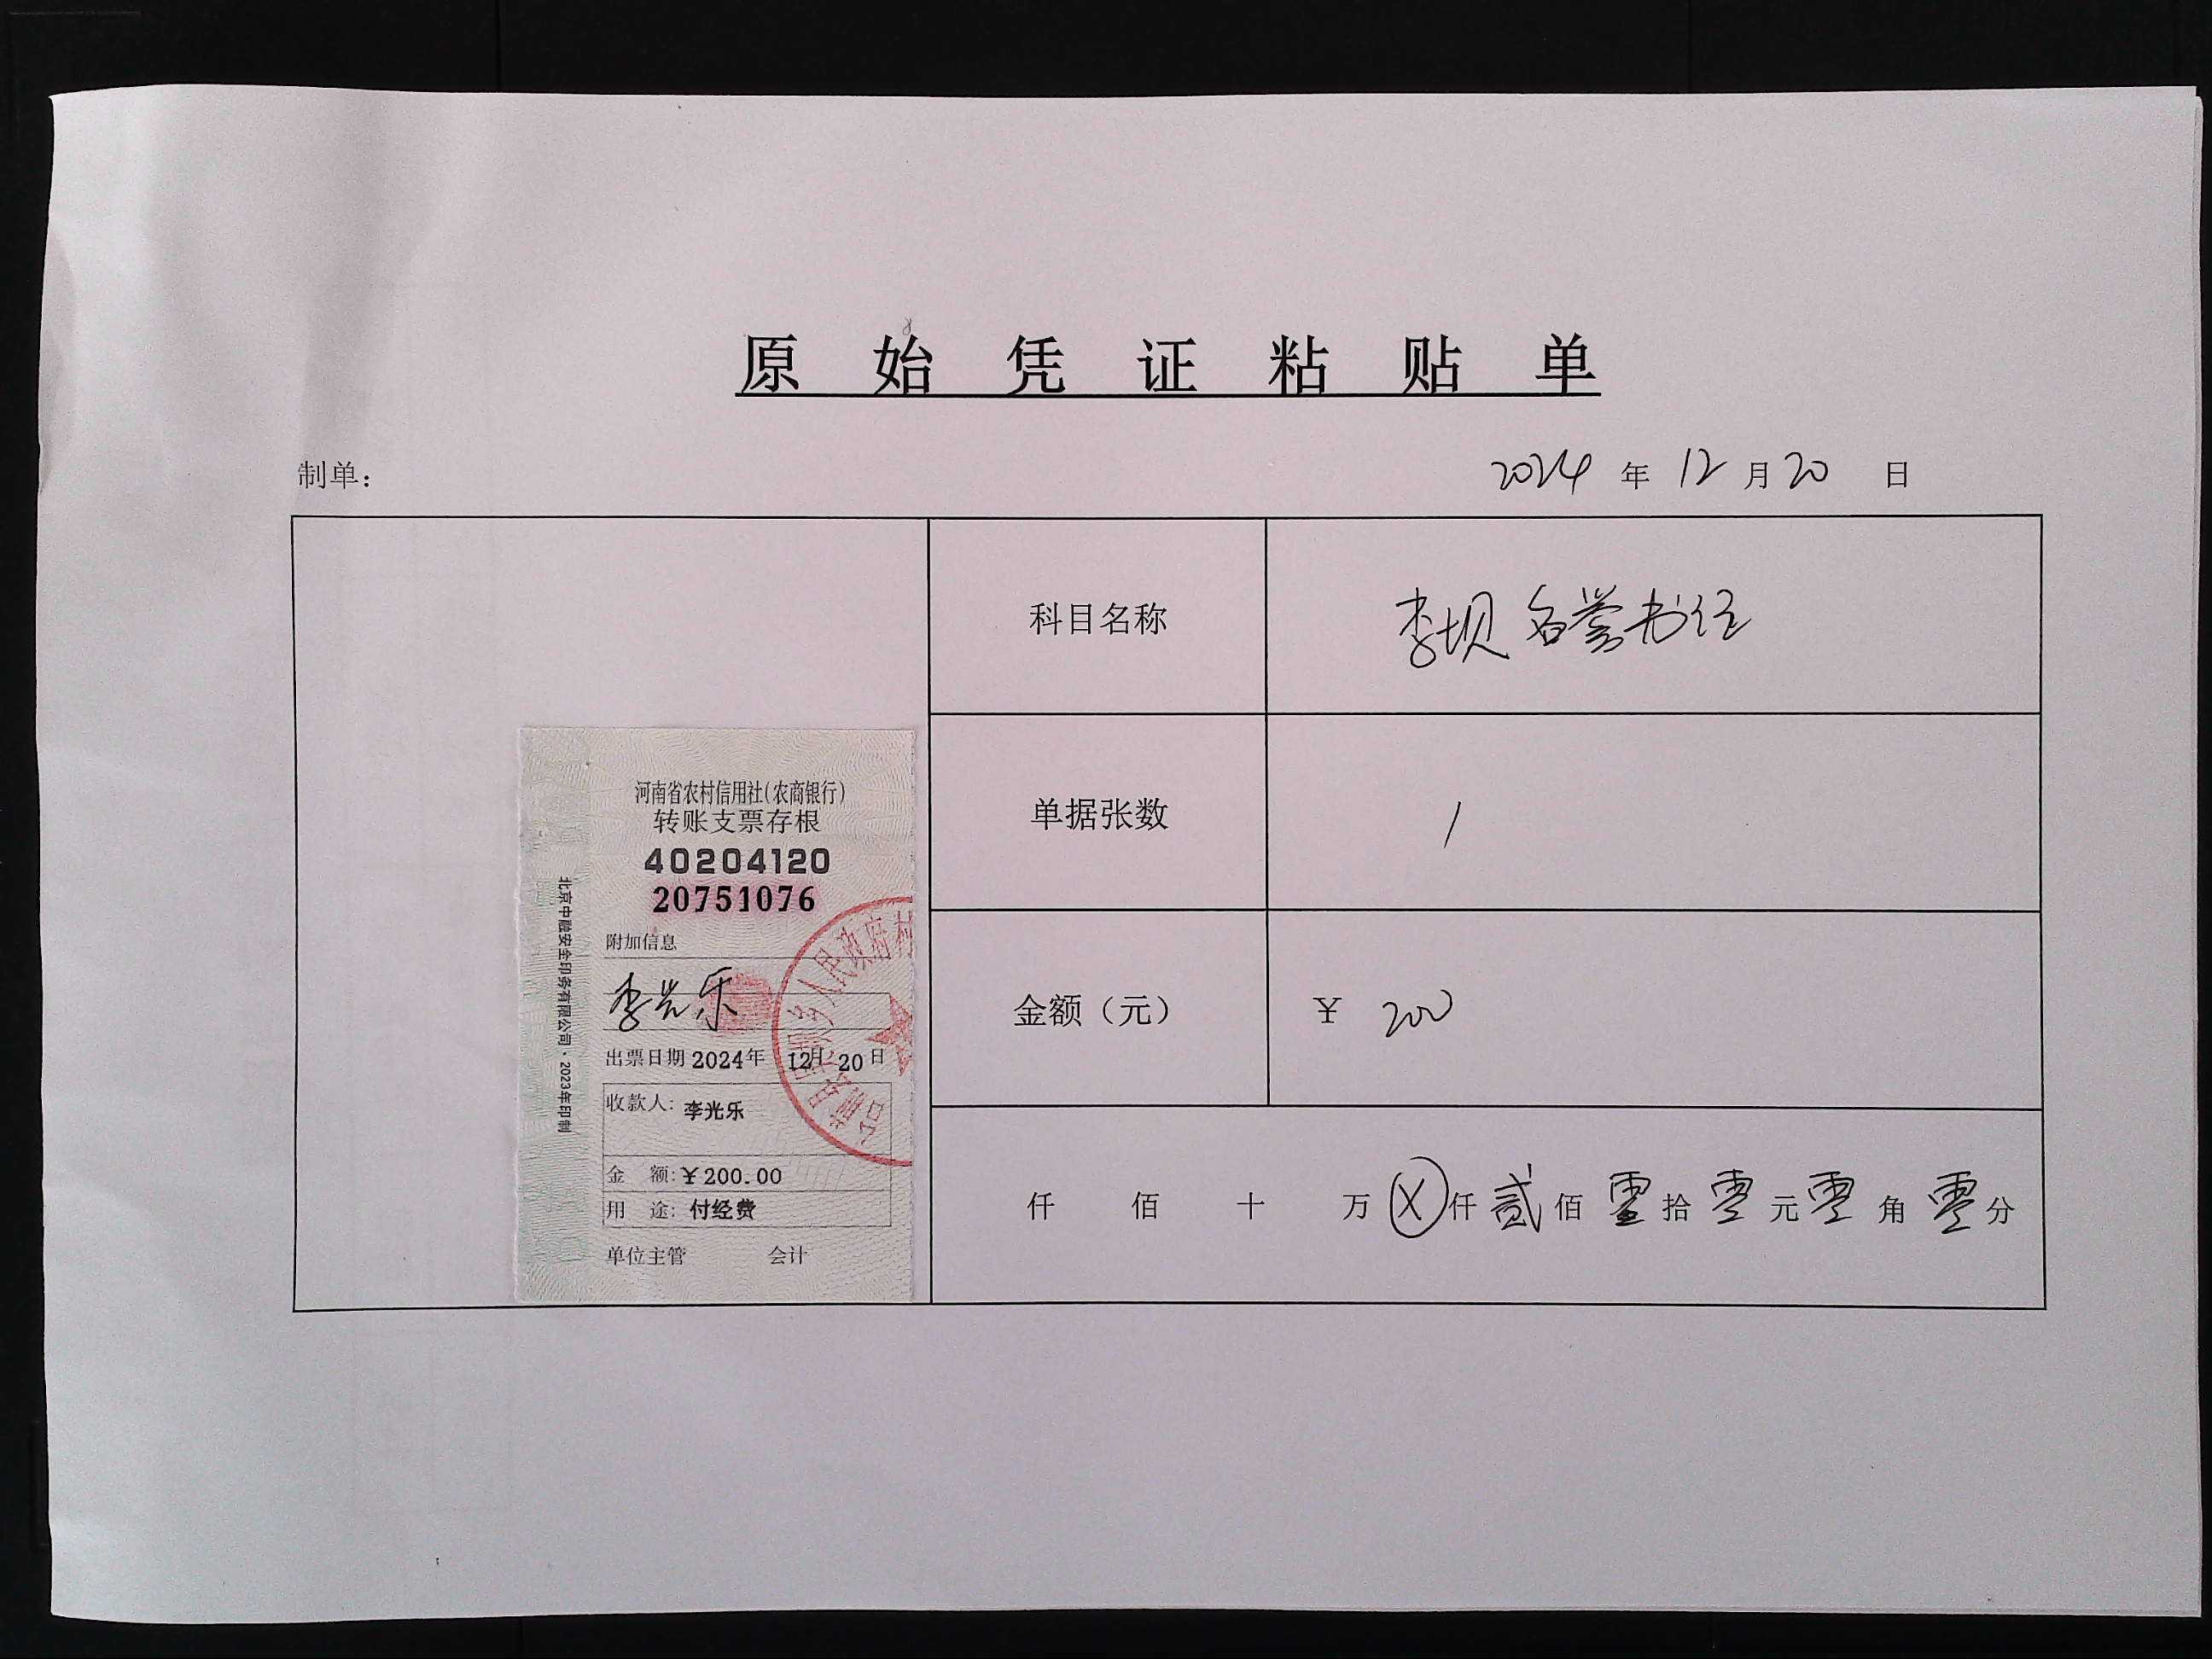 原始凭证粘贴单
制单：
2024 年 12 月 20 日
科目名称 李坝名誉书经
单据张数 1
金额（元） ¥ 200
仟 佰 十 万 ⓧ 仟 贰 佰 零 拾 零 元 零 角 零 分
河南省农村信用社(农商银行)
转账支票存根
40204120
20751076
附加信息
李光乐
出票日期 2024年 12月 20日
收款人: 李光乐
金 额: ¥200.00
用 途: 付经费
单位主管 会计
北京中融安全印务有限公司·2023年印制
人民政府村